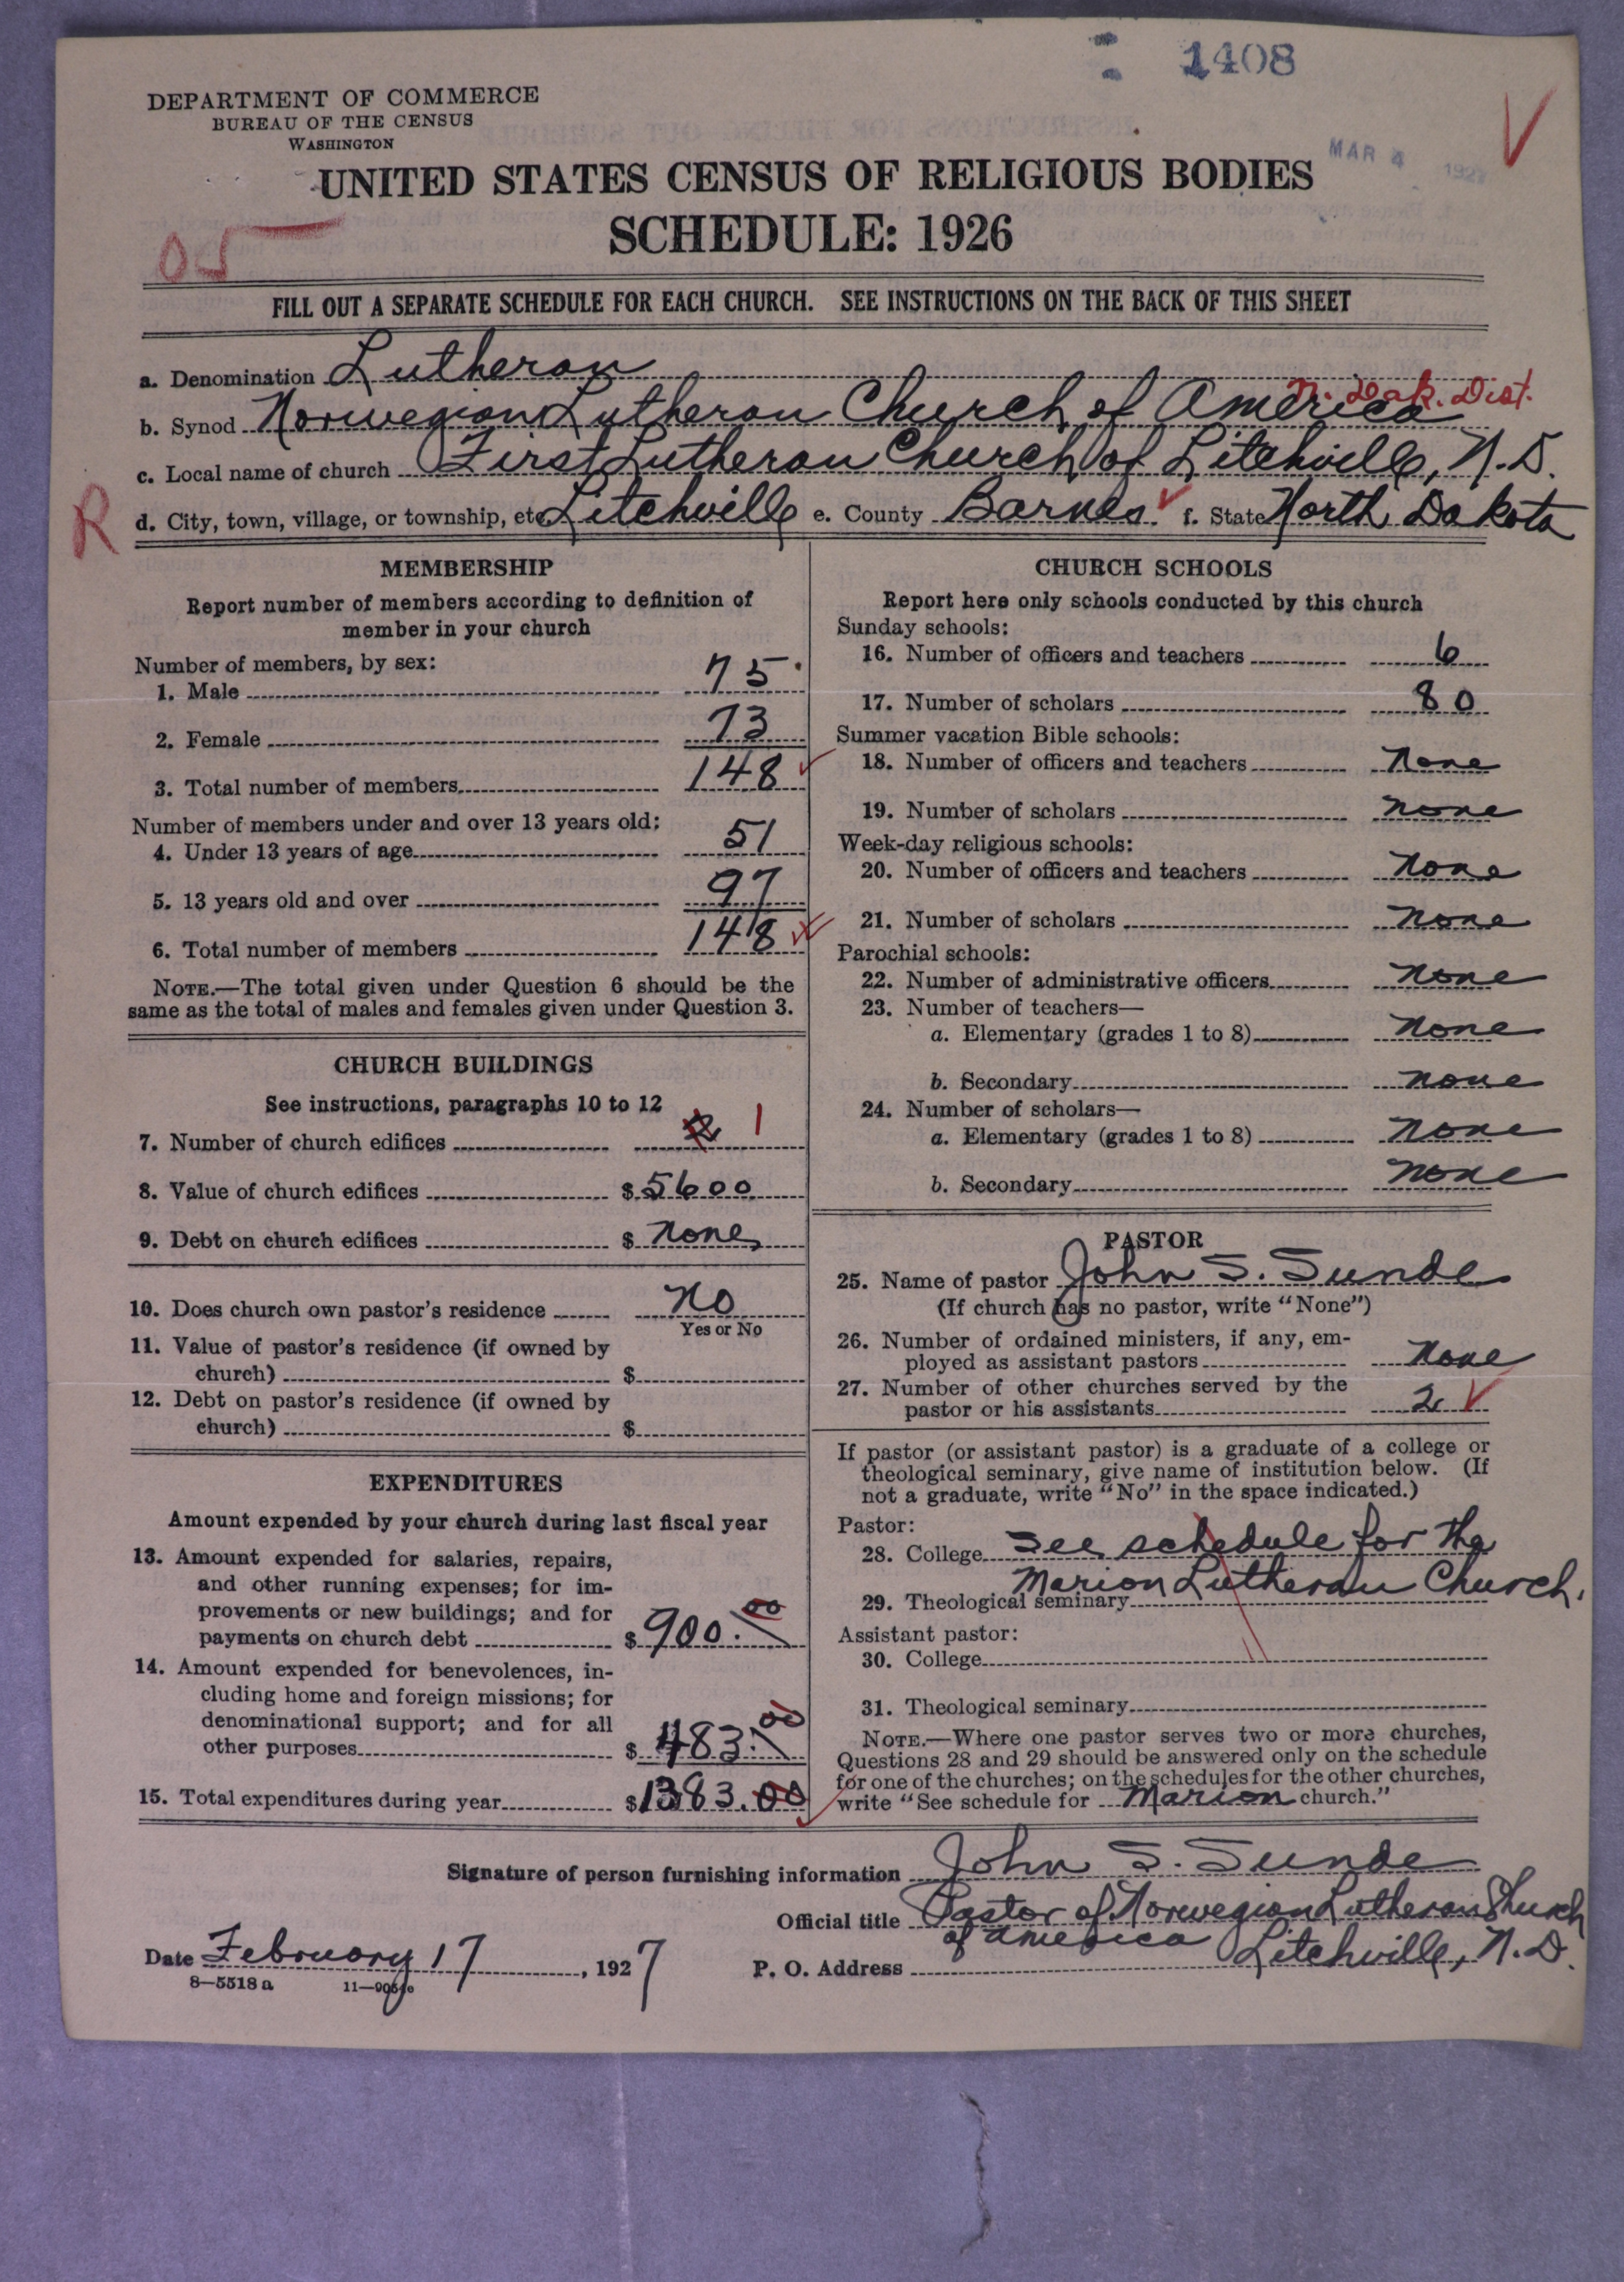 1408
DEPARTMENT OF COMMERCE
BUREAU OF THE CENSUS
WASHINGTON
MAR 4 192
UNITED STATES CENSUS OF RELIGIOUS BODIES
SCHEDULE: 1926
05
FILL OUT A SEPARATE SCHEDULE FOR EACH CHURCH. SEE INSTRUCTIONS ON THE BACK OF THIS SHEET
a. Denomination Lutheran
N. Dak. Dist.
b. Synod Norwegian Lutheran Church of America
c. Local name of church First Lutheran Church of Litchville, N.D.
R
d. City, town, village, or township, etc. Litchville e. County Barnes f. State North Dakota
MEMBERSHIP
Report number of members according to definition of
member in your church
Number of members, by sex:
1. Male 75
2. Female 73
3. Total number of members 148
Number of members under and over 13 years old:
4. Under 13 years of age 51
5. 13 years old and over 97
6. Total number of members 148
NOTE.—The total given under Question 6 should be the
same as the total of males and females given under Question 3.
CHURCH BUILDINGS
See instructions, paragraphs 10 to 12
7. Number of church edifices 2 1
8. Value of church edifices $ 5600
9. Debt on church edifices $ None
10. Does church own pastor's residence No
Yes or No
11. Value of pastor's residence (if owned by
church) $
12. Debt on pastor's residence (if owned by
church) $
EXPENDITURES
Amount expended by your church during last fiscal year
13. Amount expended for salaries, repairs,
and other running expenses; for im-
provements or new buildings; and for
payments on church debt $ 900.00
14. Amount expended for benevolences, in-
cluding home and foreign missions; for
denominational support; and for all
other purposes $ 483.00
15. Total expenditures during year $ 1383.00
CHURCH SCHOOLS
Report here only schools conducted by this church
Sunday schools:
16. Number of officers and teachers 6
17. Number of scholars 80
Summer vacation Bible schools:
18. Number of officers and teachers None
19. Number of scholars none
Week-day religious schools:
20. Number of officers and teachers None
21. Number of scholars none
Parochial schools:
22. Number of administrative officers none
23. Number of teachers—
a. Elementary (grades 1 to 8) none
b. Secondary none
24. Number of scholars—
a. Elementary (grades 1 to 8) none
b. Secondary none
PASTOR
25. Name of pastor John S. Sunde
(If church has no pastor, write "None")
26. Number of ordained ministers, if any, em-
ployed as assistant pastors none
27. Number of other churches served by the
pastor or his assistants 2
If pastor (or assistant pastor) is a graduate of a college or
theological seminary, give name of institution below. (If
not a graduate, write "No" in the space indicated.)
Pastor:
28. College See schedule for the
Marion Lutheran Church.
29. Theological seminary
Assistant pastor:
30. College
31. Theological seminary
NOTE.—Where one pastor serves two or more churches,
Questions 28 and 29 should be answered only on the schedule
for one of the churches; on the schedules for the other churches,
write "See schedule for Marion church."
Signature of person furnishing information John S. Sunde
Official title Pastor of Norwegian Lutheran Church
of America
Date February 17, 1927
P. O. Address Litchville, N.D.
8—5518 a